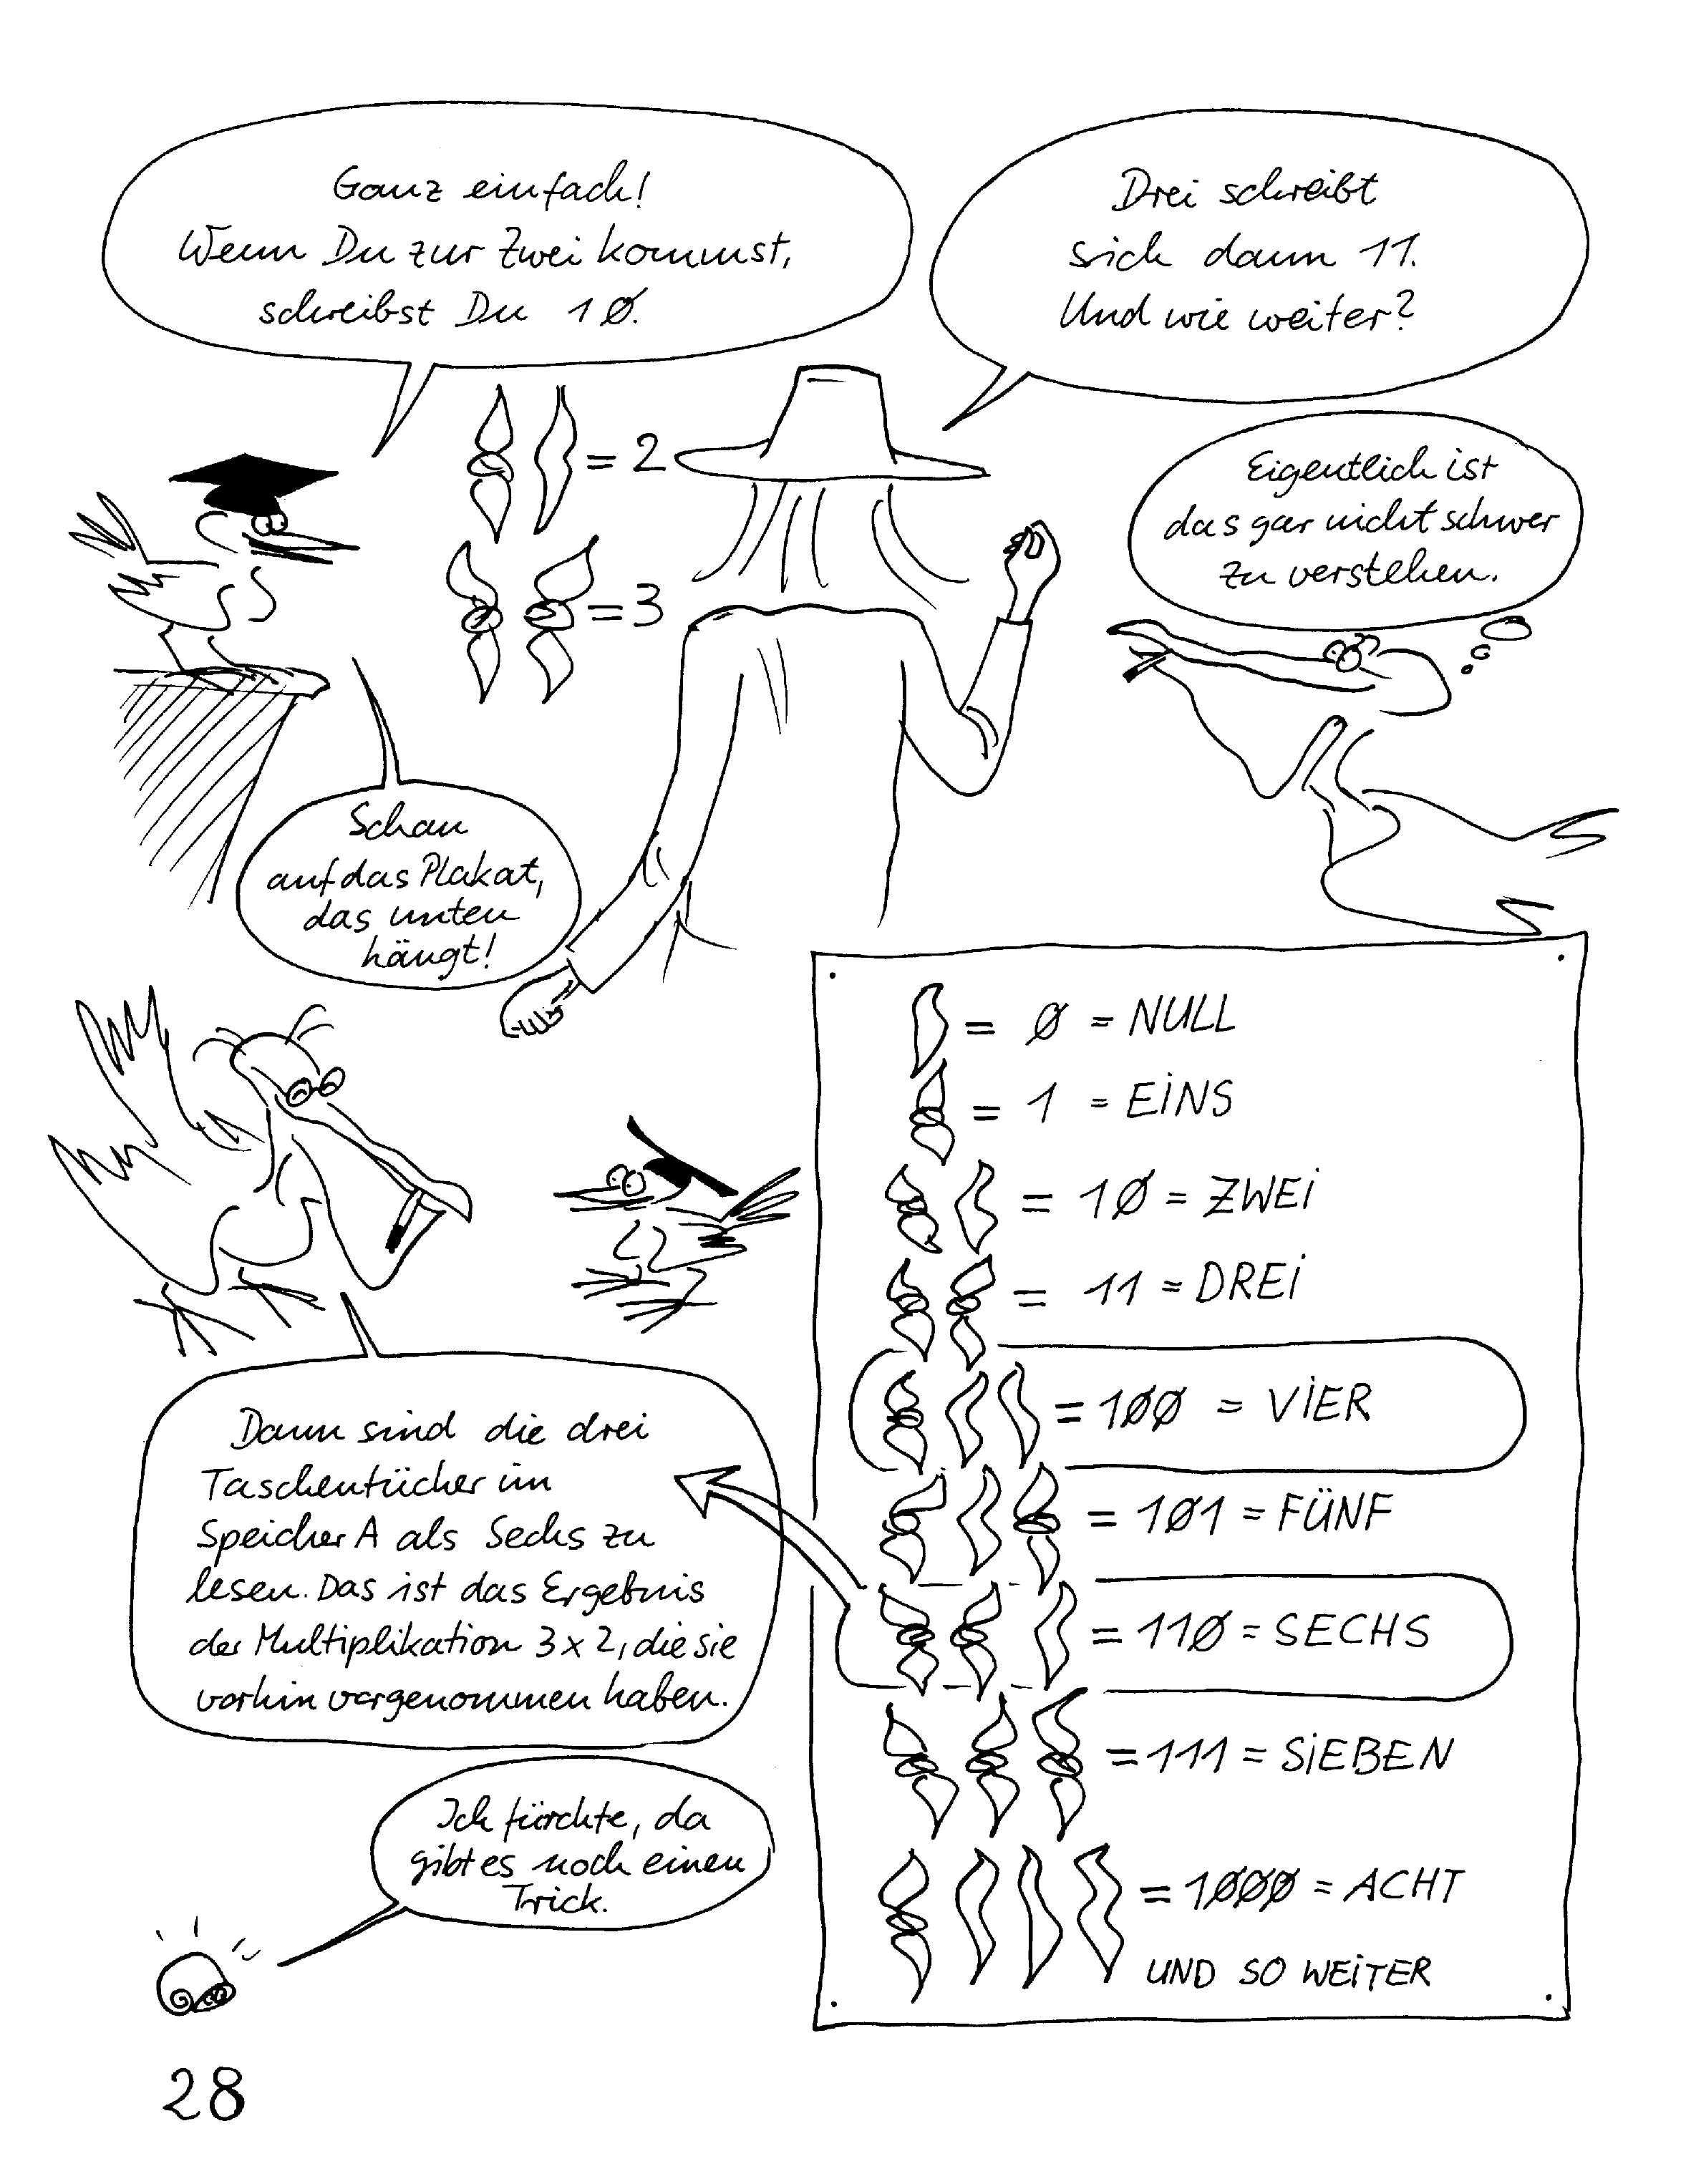 Ganz einfach!
Wenn Du zur Zwei kommst,
schreibst Du 1Ø.
Drei schreibt
sich dann 11.
Und wie weiter?
= 2
= 3
Eigentlich ist
das gar nicht schwer
zu verstehen.
Schau
auf das Plakat,
das unten
hängt!
= Ø = NULL
= 1 = EiNS
= 1Ø = ZWEi
= 11 = DREi
= 1ØØ = ViER
= 1Ø1 = FÜNF
= 11Ø = SECHS
= 111 = SiEBEN
= 1ØØØ = ACHT
UND SO WEiTER
Dann sind die drei
Taschentücher im
Speicher A als Sechs zu
lesen. Das ist das Ergebnis
der Multiplikation 3 x 2, die sie
vorhin vorgenommen haben.
Ich fürchte, da
gibt es noch einen
Trick.
28